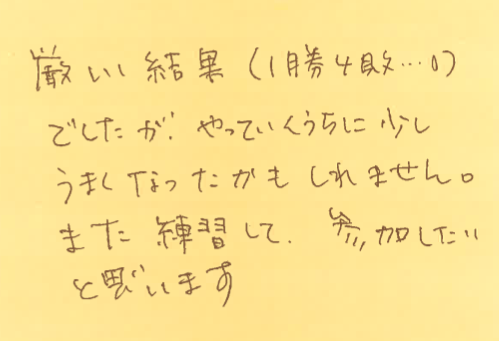 厳しい結果（1勝4敗…！）
でしたが、やっていくうちに少し
うまくなったかもしれません。
また練習して、参加したい
と思います